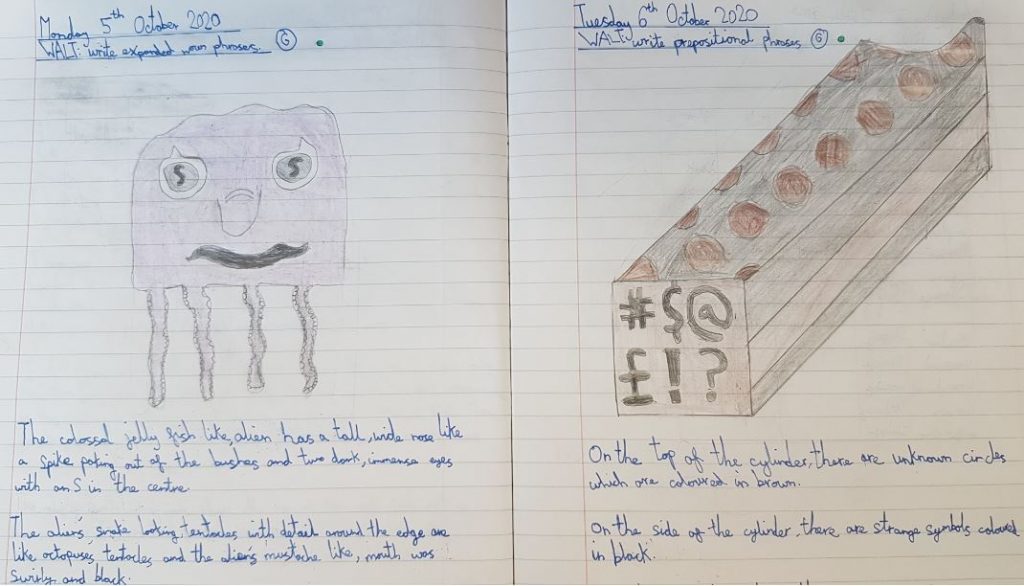 Monday 5th October 2020
WALT: write expanded noun phrases. G
S S
The colossal jelly fish like, alien has a tall, wide nose like
a spike poking out of the bushes and two dark, immense eyes
with an S in the centre.
The alien's snake looking, tentacles with detail around the edge are
like octopuses, tentacles and the alien's mustache like, mouth was
swirly and black.
Tuesday 6th October 2020
WALT: write prepositional phrases G
# $ @
£ ! ?
On the top of the cylinder, there are unknown circles
which are coloured in brown.
On the side of the cylinder, there are strange symbols coloured
in black.